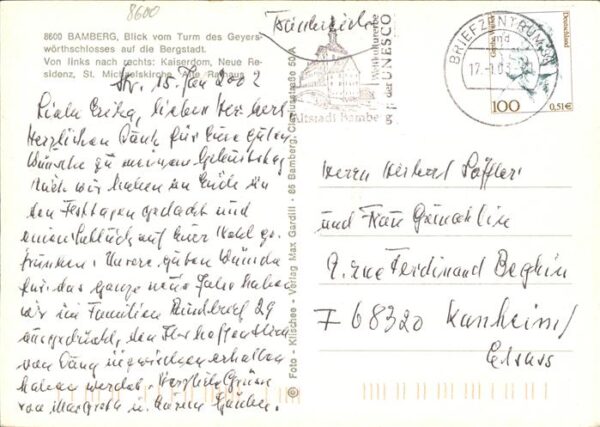 8600
8600 BAMBERG, Blick vom Turm des Geyers-
wörthschlosses auf die Bergstadt.
Von links nach rechts: Kaiserdom, Neue Re-
sidenz, St. Michaelskirche, Alte Rathaus
15. Jan 2002
Liebe Erika, lieber Herbert
Herzlichen Dank für Eure guten
Wünsche zu meinem Geburtstag
Auch wir haben an Euch in
den Festtagen gedacht und
einen Schluck auf Euer Wohl ge-
trunken. Unsere guten Wünsche
für das ganze neue Jahr haben
wir im Familien Rundbrief 29
ausgedrückt, den Ihr hoffentlich
von inzwischen erhalten
haben werdet. Herzliche Grüße
von Margreth u. Eurem
© Foto - Klischee - Verlag Max Gardill - 86 Bamberg, 50 A
Weltkulturerbe
der UNESCO
Altstadt Bamberg
BRIEFZENTRUM 96
md
17.-1.02
Deutschland
100
0,51€
Herrn Herbert Löffler
und Frau Gemahlin
9. rue Ferdinand Beghin
F 68320 Kunheim/
Elsass